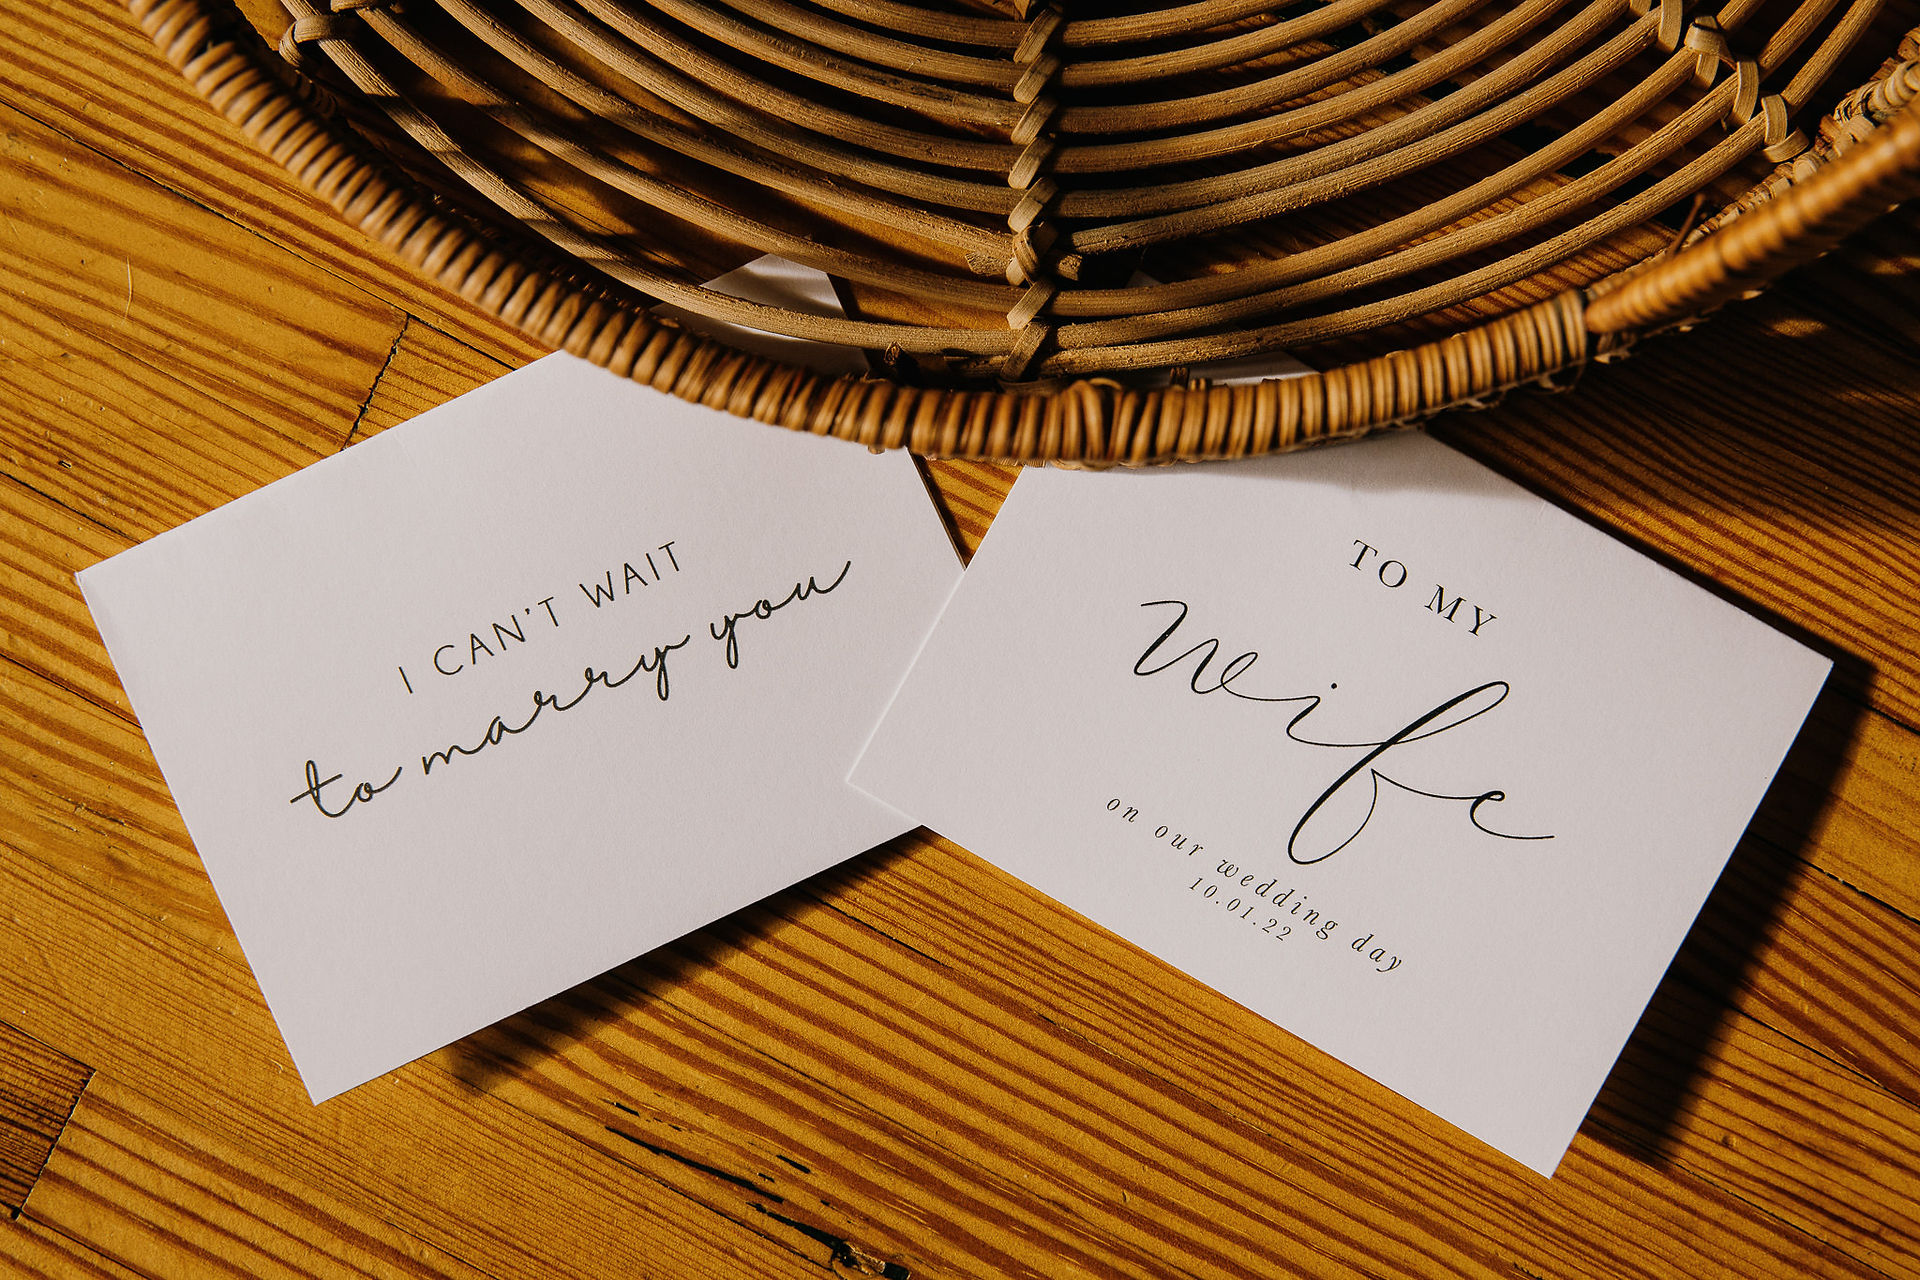 I CAN'T WAIT
to marry you
TO MY
wife
on our wedding day
10.01.22